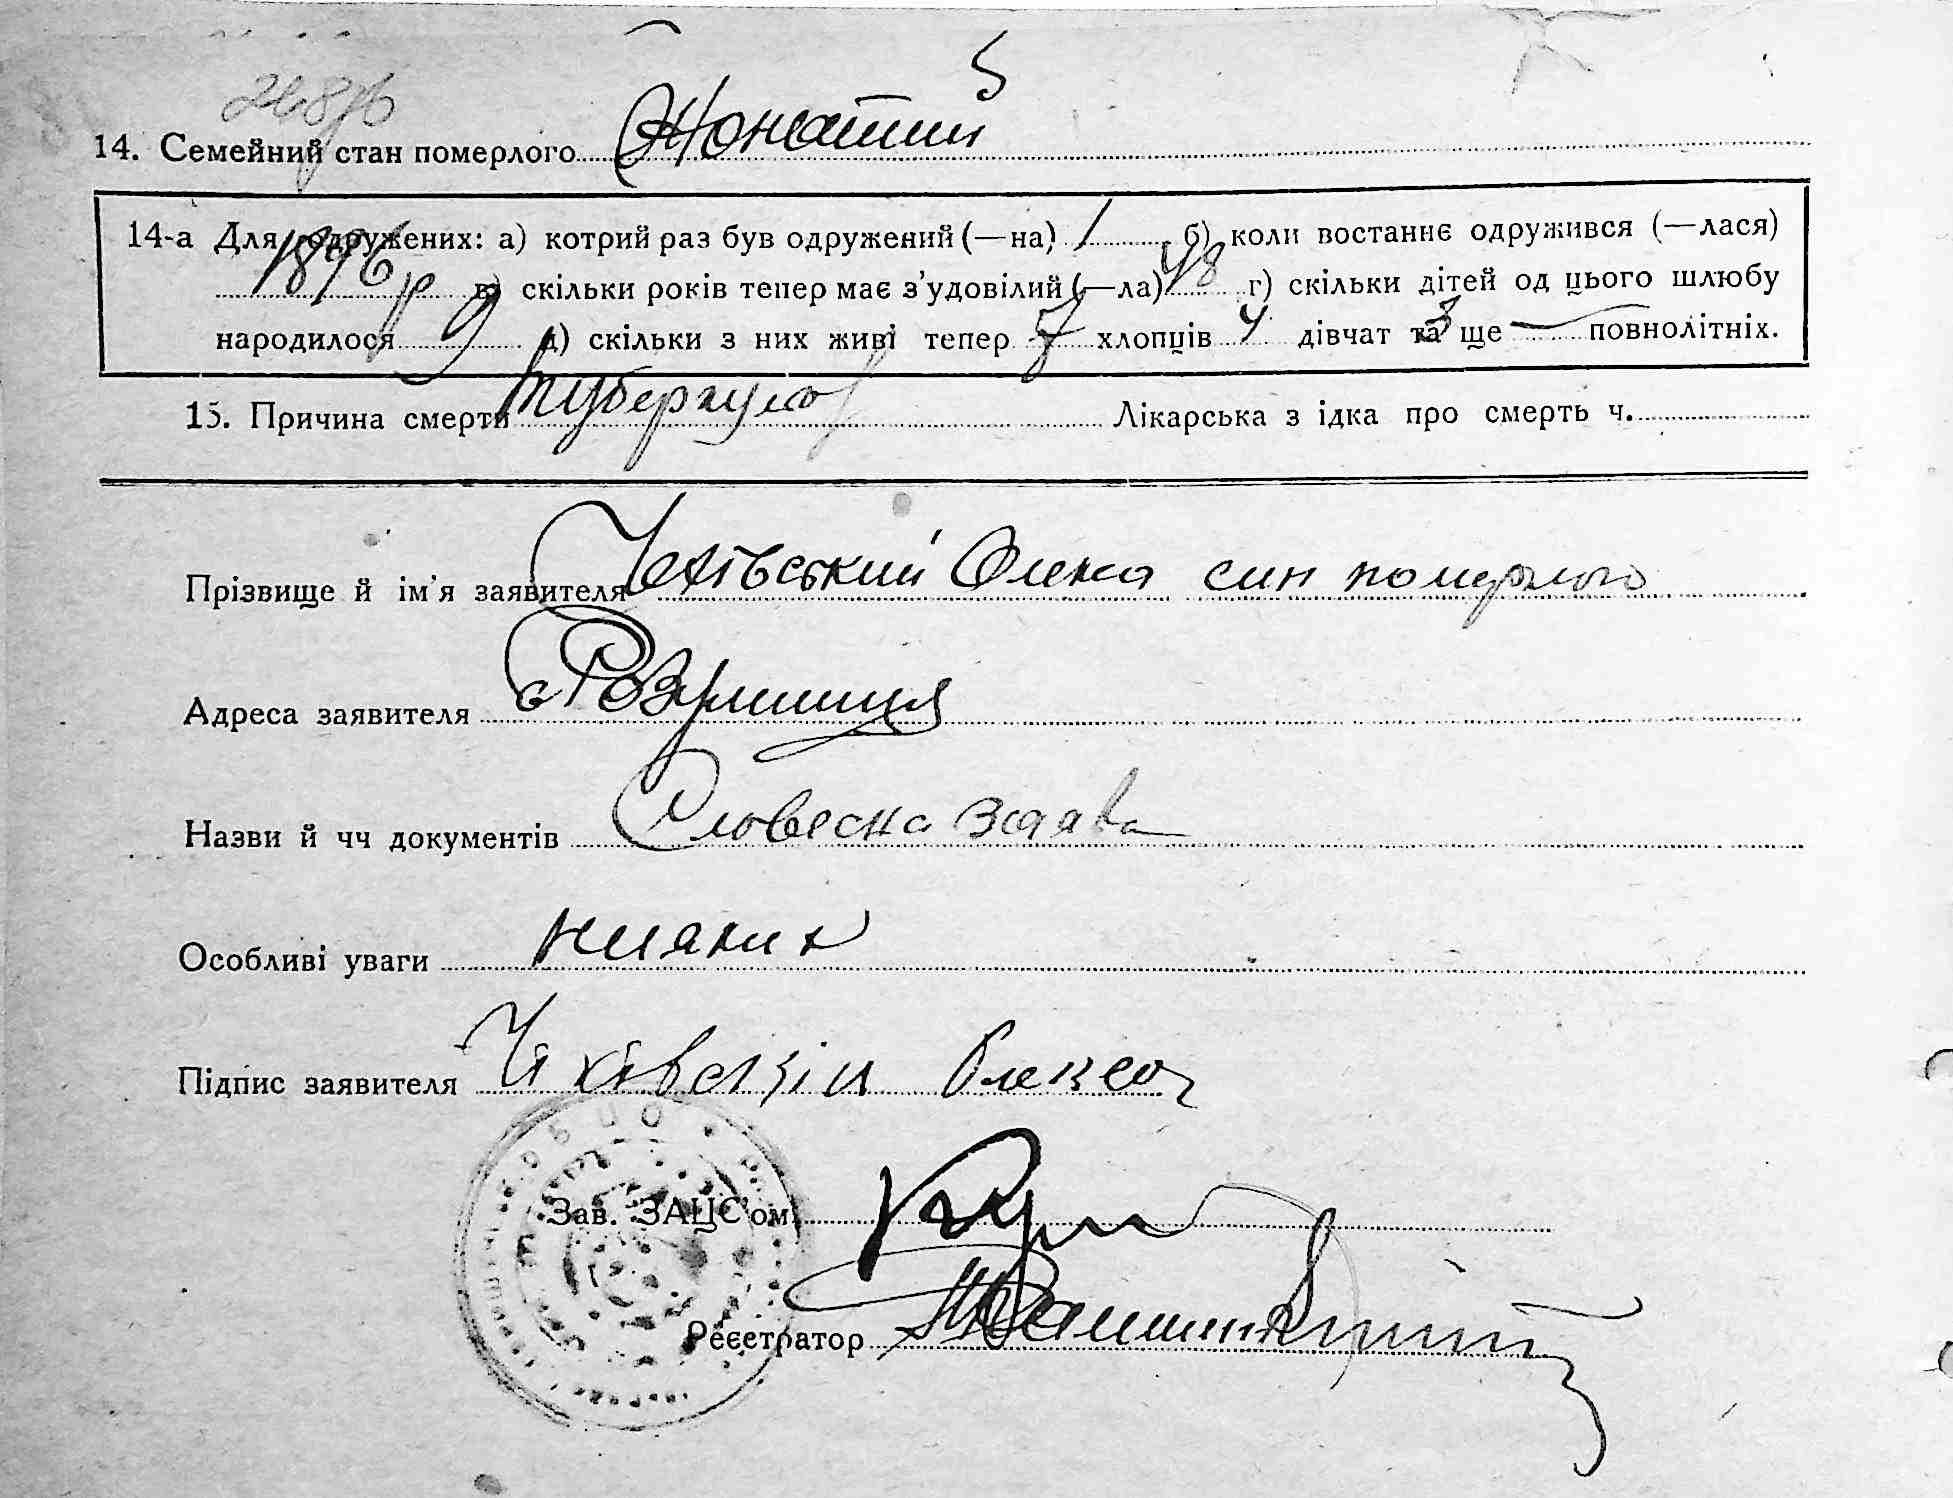 14. Семейний стан померлого Жонатий
14-а Для одружених: а) котрий раз був одружений (—на) 1 б) коли востаннє одружився (—лася)
1896 р в) скільки років тепер має з'удовілий (—ла) 48 г) скільки дітей од цього шлюбу
народилося 9 д) скільки з них живі тепер 7 хлопців 4 дівчат та 3 ще — повнолітніх.
15. Причина смерти туберкульоз Лікарська з ідка про смерть ч.
Прізвище й ім'я заявителя Чехівський Олекса син померлого
Адреса заявителя с Розкішиця
Назви й чч документів Словесна заява
Особливі уваги нияких
Підпис заявителя Чихівскій Олекса
Зав. ЗАЦС'ом
Реєстратор